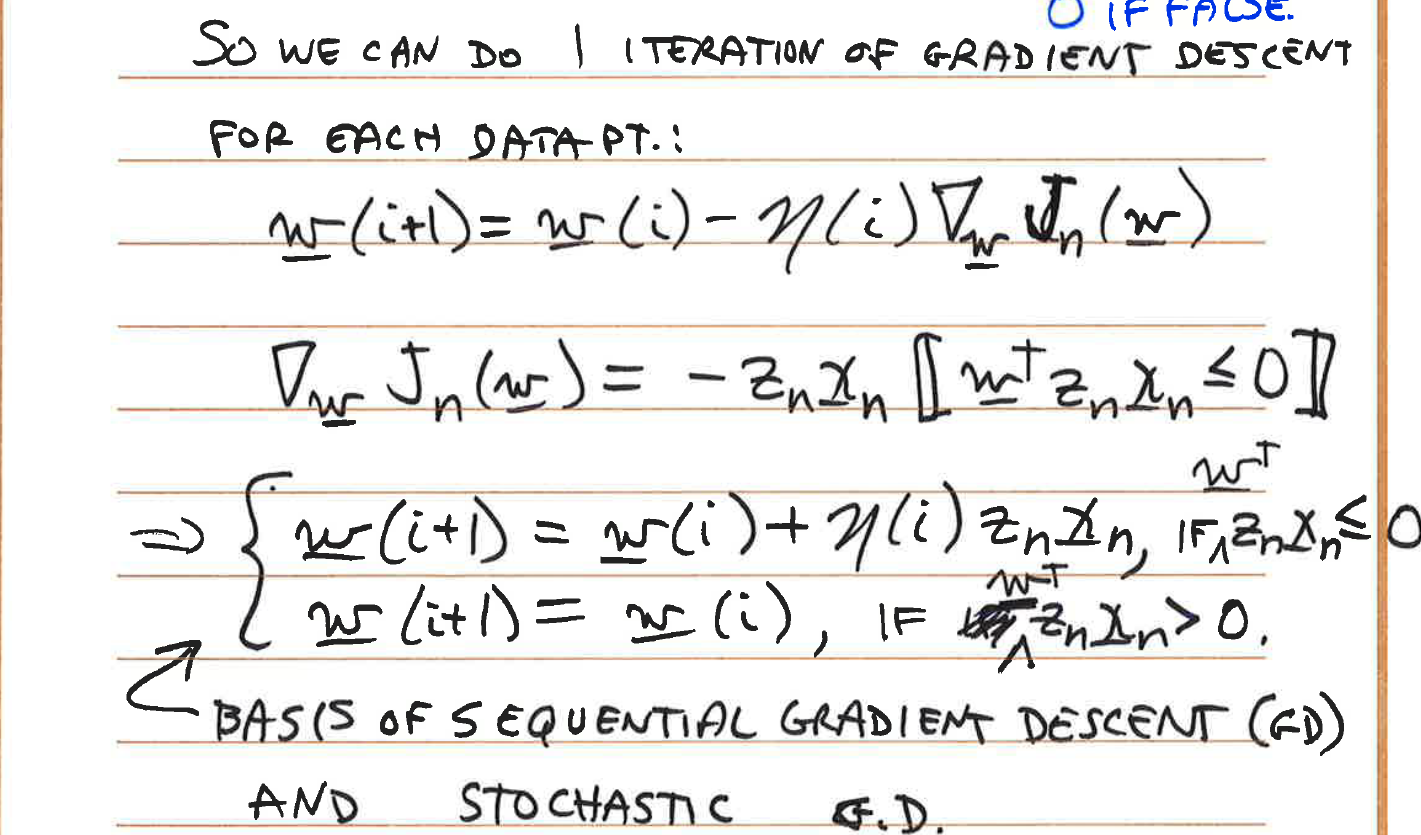 0 IF FALSE.
SO WE CAN DO 1 ITERATION OF GRADIENT DESCENT
FOR EACH DATA PT.:
w̲(i+1) = w̲(i) - η(i) ∇_w̲ J_n(w̲)
∇_w̲ J_n(w̲) = - z_n x̲_n ⟦ w̲ᵀ z_n x̲_n ≤ 0 ⟧
⇒ { w̲(i+1) = w̲(i) + η(i) z_n x̲_n, IF w̲ᵀ z_n x̲_n ≤ 0
w̲(i+1) = w̲(i), IF w̲ᵀ z_n x̲_n > 0.
BASIS OF SEQUENTIAL GRADIENT DESCENT (GD)
AND STOCHASTIC G.D.